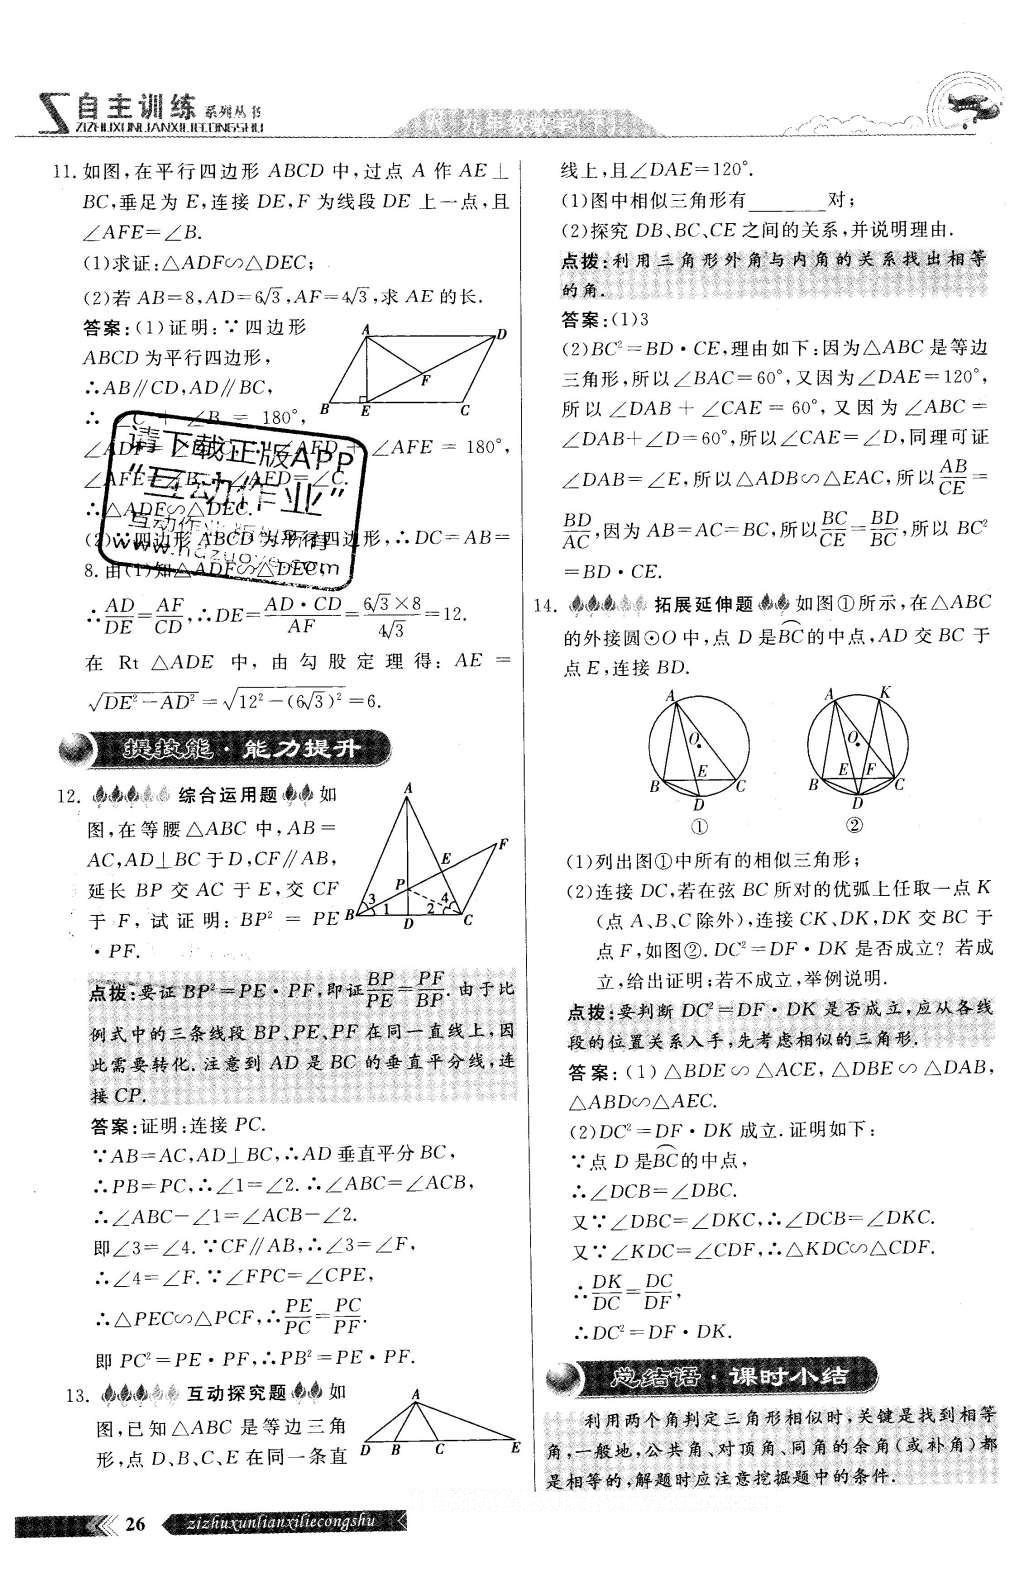 自主训练 系列丛书
ZIZHUXUNLIANXILIECONGSHU
11. 如图,在平行四边形 ABCD 中,过点 A 作 AE⊥
BC,垂足为 E,连接 DE,F 为线段 DE 上一点,且
∠AFE=∠B.
(1)求证:△ADF∽△DEC;
(2)若 AB=8,AD=6√3,AF=4√3,求 AE 的长.
答案:(1)证明:∵四边形
ABCD 为平行四边形,
∴AB∥CD,AD∥BC,
∴∠C+∠B=180°,
∠AFE=180°,
∠AFE=∠B,∴∠AFD=∠C.
(2)∵四边形 ABCD 为平行四边形,∴DC=AB=
8.由(1)知△ADF∽△DEC,
∴AD/DE=AF/CD,∴DE=AD·CD/AF=6√3×8/4√3=12.
在 Rt △ADE 中,由勾股定理得:AE=
√DE²-AD²=√12²-(6√3)²=6.
A D F B E C
请下载正版APP
“互动作业”
提技能·能力提升
12. 综合运用题 如
图,在等腰△ABC 中,AB=
AC,AD⊥BC 于 D,CF∥AB,
延长 BP 交 AC 于 E,交 CF
于 F,试证明:BP²=PE
·PF.
A F E P 3 1 2 4 B D C
点拨:要证 BP²=PE·PF,即证BP/PE=PF/BP.由于比
例式中的三条线段 BP、PE、PF 在同一直线上,因
此需要转化.注意到 AD 是 BC 的垂直平分线,连
接 CP.
答案:证明:连接 PC.
∵AB=AC,AD⊥BC,∴AD 垂直平分 BC,
∴PB=PC,∴∠1=∠2.∴∠ABC=∠ACB,
∴∠ABC-∠1=∠ACB-∠2.
即∠3=∠4.∵CF∥AB,∴∠3=∠F,
∴∠4=∠F.∵∠FPC=∠CPE,
∴△PEC∽△PCF,∴PE/PC=PC/PF.
即 PC²=PE·PF,∴PB²=PE·PF.
13. 互动探究题 如
图,已知△ABC 是等边三角
形,点 D、B、C、E 在同一条直
A D B C E
线上,且∠DAE=120°.
(1)图中相似三角形有________对;
(2)探究 DB、BC、CE 之间的关系,并说明理由.
点拨:利用三角形外角与内角的关系找出相等
的角.
答案:(1)3
(2)BC²=BD·CE,理由如下:因为△ABC 是等边
三角形,所以∠BAC=60°,又因为∠DAE=120°,
所以∠DAB+∠CAE=60°,又因为∠ABC=
∠DAB+∠D=60°,所以∠CAE=∠D,同理可证
∠DAB=∠E,所以△ADB∽△EAC,所以AB/CE=
BD/AC,因为 AB=AC=BC,所以BC/CE=BD/BC,所以 BC²
=BD·CE.
14. 拓展延伸题 如图①所示,在△ABC
的外接圆⊙O 中,点 D 是B͡C的中点,AD 交 BC 于
点 E,连接 BD.
A O B E C D
①
A K O B E F C D
②
(1)列出图①中所有的相似三角形;
(2)连接 DC,若在弦 BC 所对的优弧上任取一点 K
(点 A、B、C 除外),连接 CK、DK,DK 交 BC 于
点 F,如图②.DC²=DF·DK 是否成立?若成
立,给出证明;若不成立,举例说明.
点拨:要判断 DC²=DF·DK 是否成立,应从各线
段的位置关系入手,先考虑相似的三角形.
答案:(1)△BDE∽△ACE,△DBE∽△DAB,
△ABD∽△AEC.
(2)DC²=DF·DK 成立.证明如下:
∵点 D 是B͡C的中点,
∴∠DCB=∠DBC.
又∵∠DBC=∠DKC,∴∠DCB=∠DKC.
又∵∠KDC=∠CDF,∴△KDC∽△CDF.
∴DK/DC=DC/DF,
∴DC²=DF·DK.
总结语·课时小结
利用两个角判定三角形相似时,关键是找到相等
角,一般地,公共角、对顶角、同角的余角(或补角)都
是相等的,解题时应注意挖掘题中的条件.
26 zizhuxunlianxiliecongshu